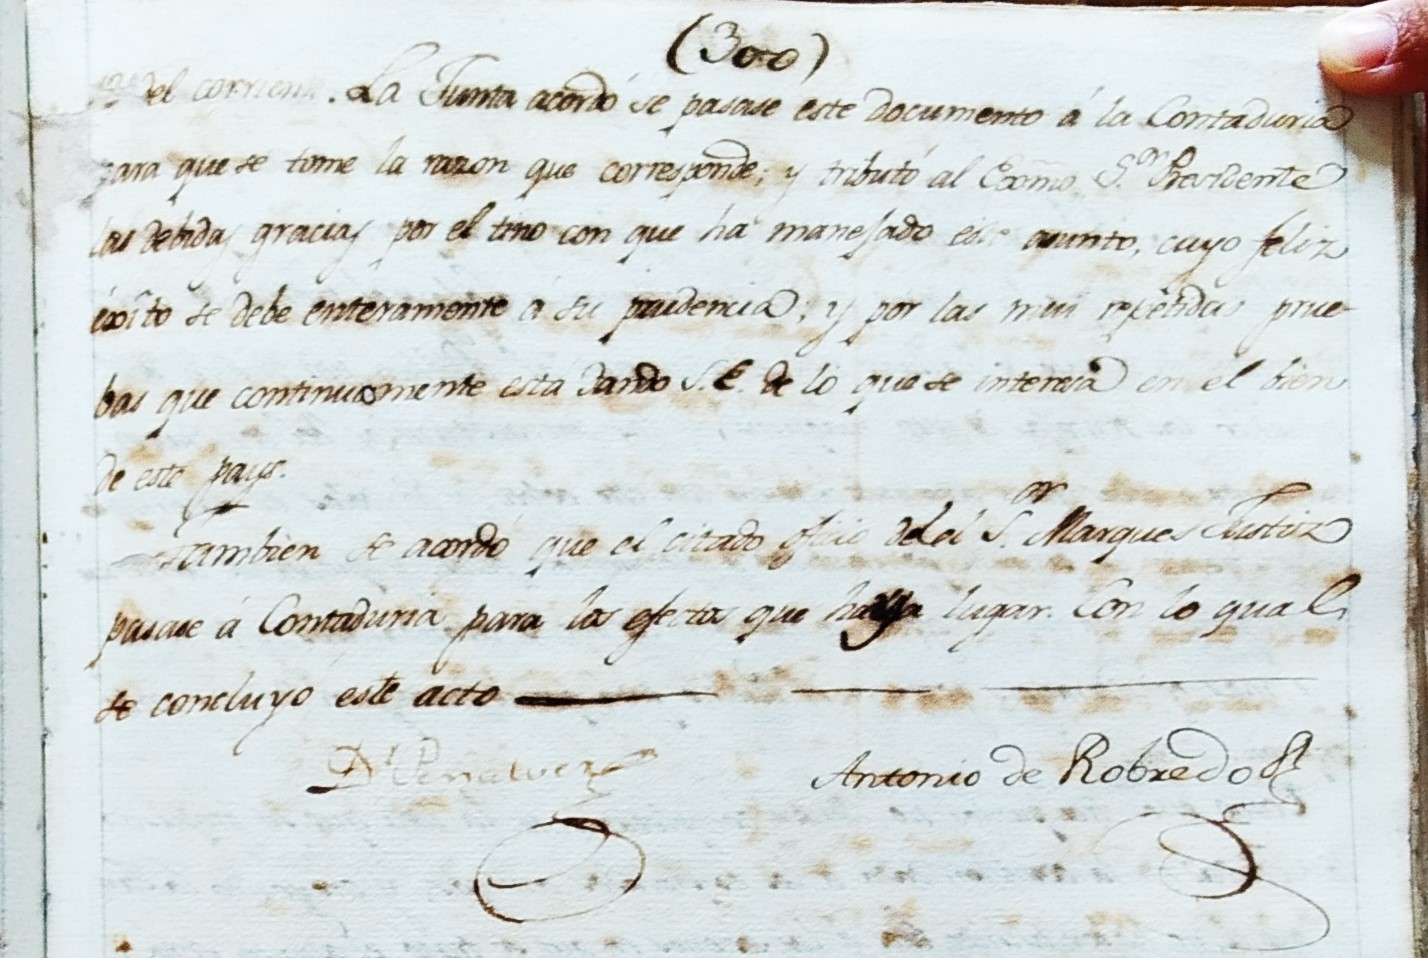 (300)
del corrien. La Junta acordó se pasase este documento á la Contaduria
para que se tome la razon que corresponde; y tributó al Exmô. S.ᵒʳ Presidente
las debidas gracias por el tino con que ha manejado este asunto, cuyo feliz
éxîto se debe enteramente á su prudencia; y por las mui repetidas prue-
bas que continuamente está dando S. E. de lo que se interesa en el bien
de este pays.
Tambien se acordó que el citado oficio del el S.ᵒʳ Marques Justiz
pasase á Contaduria para los efectos que haya lugar. Con lo qual
se concluyó este acto
D.ʳ Peñalver
Antonio de Robredo